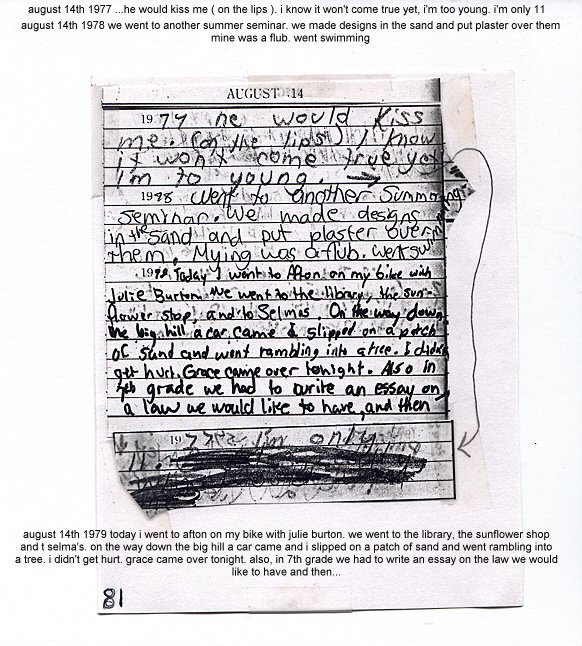 august 14th 1977 ...he would kiss me ( on the lips ). i know it won't come true yet, i'm too young. i'm only 11
august 14th 1978 we went to another summer seminar. we made designs in the sand and put plaster over them
mine was a flub. went swimming
AUGUST 14
1977 he would kiss
me. (on the lips) I know
it won't come true yet
I'm to young.
1978 went to another Summer
Seminar. We made designs
in the sand and put plaster over
them. Mying was a flub. went swi
1979 Today I went to Afton on my bike with
Julie Burton. We went to the library, the sun-
flower stop, and to Selmas. On the way down
the big hill a car came & slipped on a patch
of sand and went rambling into a tree. I didn't
get hurt. Grace came over tonight. Also in
7th grade we had to write an essay on
a law we would like to have, and then
1977 I'm only
11.
august 14th 1979 today i went to afton on my bike with julie burton. we went to the library, the sunflower shop
and t selma's. on the way down the big hill a car came and i slipped on a patch of sand and went rambling into
a tree. i didn't get hurt. grace came over tonight. also, in 7th grade we had to write an essay on the law we would
like to have and then...
81